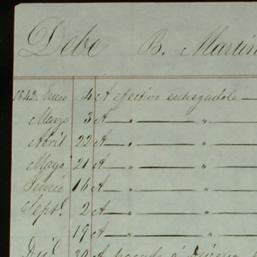 Debe B. Martin
1842. Enero 4 A efectivo entregadole
Marzo 3 A — " — " —
Abril 22 A — " — " —
Mayo 21 A — " — " —
Junio 16 A — " — " —
Sept. 2 A — " — " —
19 A — " — " —